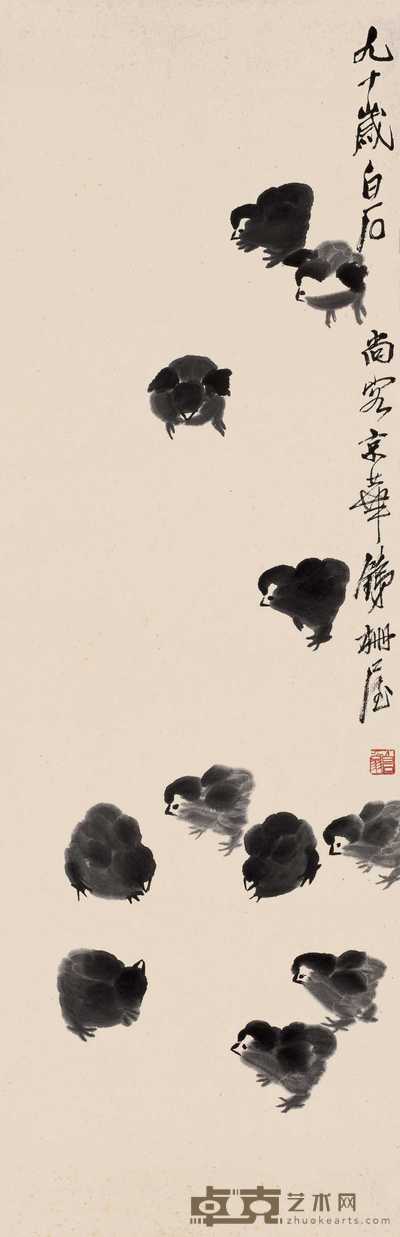 九十歲白石尚客京華鐵柵屋
卓克艺术网
zhuokearts.com